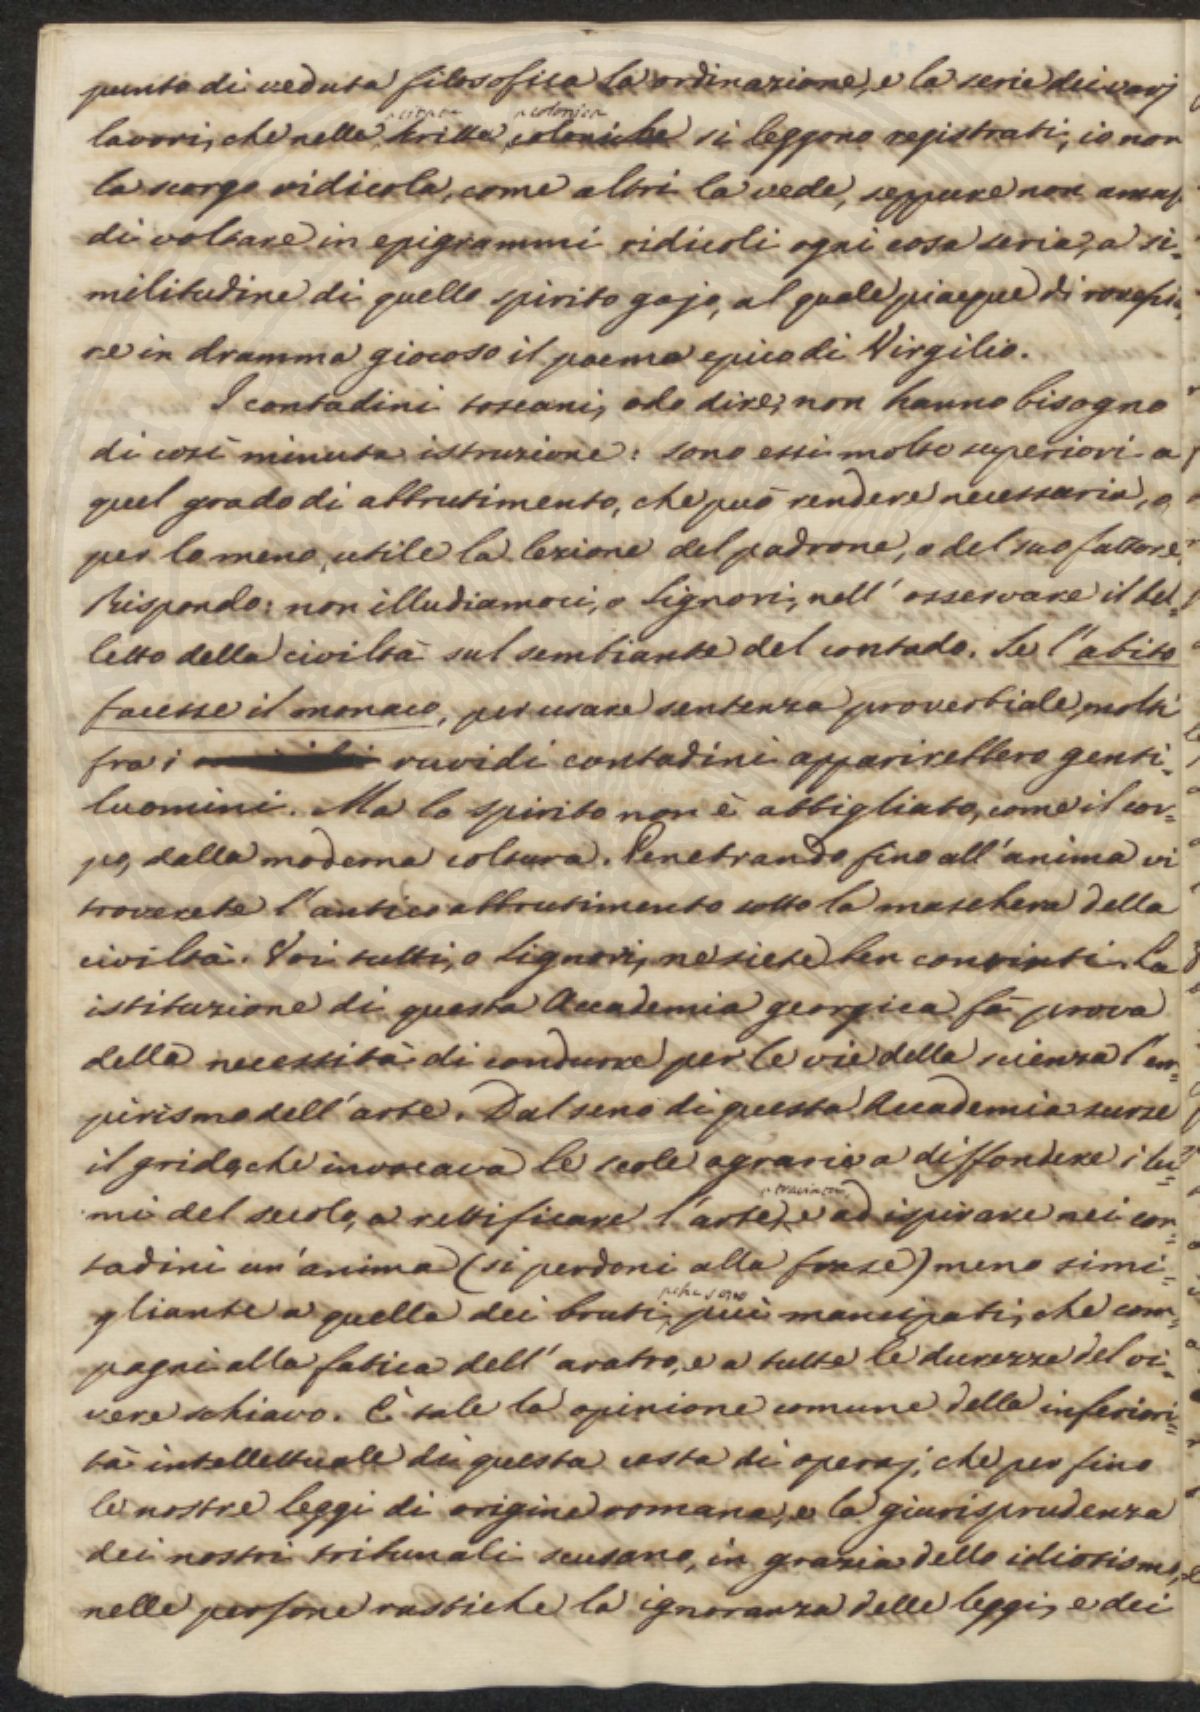 punto di veduta filosofica la ordinazione, e la serie dei varj
lavori, che nelle scritte coloniche si leggono registrati, io non
la scorgo ridicola, come altri la vede, seppure non amasse
di voltare in epigrammi ridicoli ogni cosa seria, a si=
militudine di quello spirito gajo, al quale piacque di rovescia=
re in dramma giocoso il poema epico di Virgilio.
I contadini toscani, odo dire, non hanno bisogno
di così minuta istruzione: sono essi molto superiori a
quel grado di abbrutimento, che può rendere necessaria, o
per lo meno utile la lezione del padrone, o del suo fattore.
Rispondo: non illudiamoci, o Signori, nell'osservare il bel=
letto della civiltà sul sembiante del contado. Se l'abito
facesse il monaco, per usare sentenza proverbiale, molti
fra i ruvidi contadini apparirebbero genti=
luomini. Ma lo spirito non è abbigliato, come il cor=
po, dalla moderna coltura. Penetrando fino all'anima vi
troverete l'antico abbrutimento sotto la maschera della
civiltà. Voi tutti, o Signori, ne siete ben convinti. La
istituzione di questa Accademia georgica fà prova
della necessità di condurre per le vie della scienza l'em=
pirismo dell'arte. Dal seno di questa Accademia surse
il grido, che invocava le scole agrarie a diffondere i lu=
mi del secolo, a rettificare l'arte, e ad ispirare nei con=
tadini un'anima (si perdoni alla frase) meno simi=
gliante a quella dei bruti, che sono
più mancipati, che com=
pagni alla fatica dell'aratro, e a tutte le durezze del vi=
vere schiavo. È tale la opinione comune della inferiori=
tà intellettuale di questa casta di operaj, che per fino
le nostre leggi di origine romana, e la giurisprudenza
dei nostri tribunali scusano, in grazia dello idiotismo,
nelle persone rustiche la ignoranza delle leggi, e dei